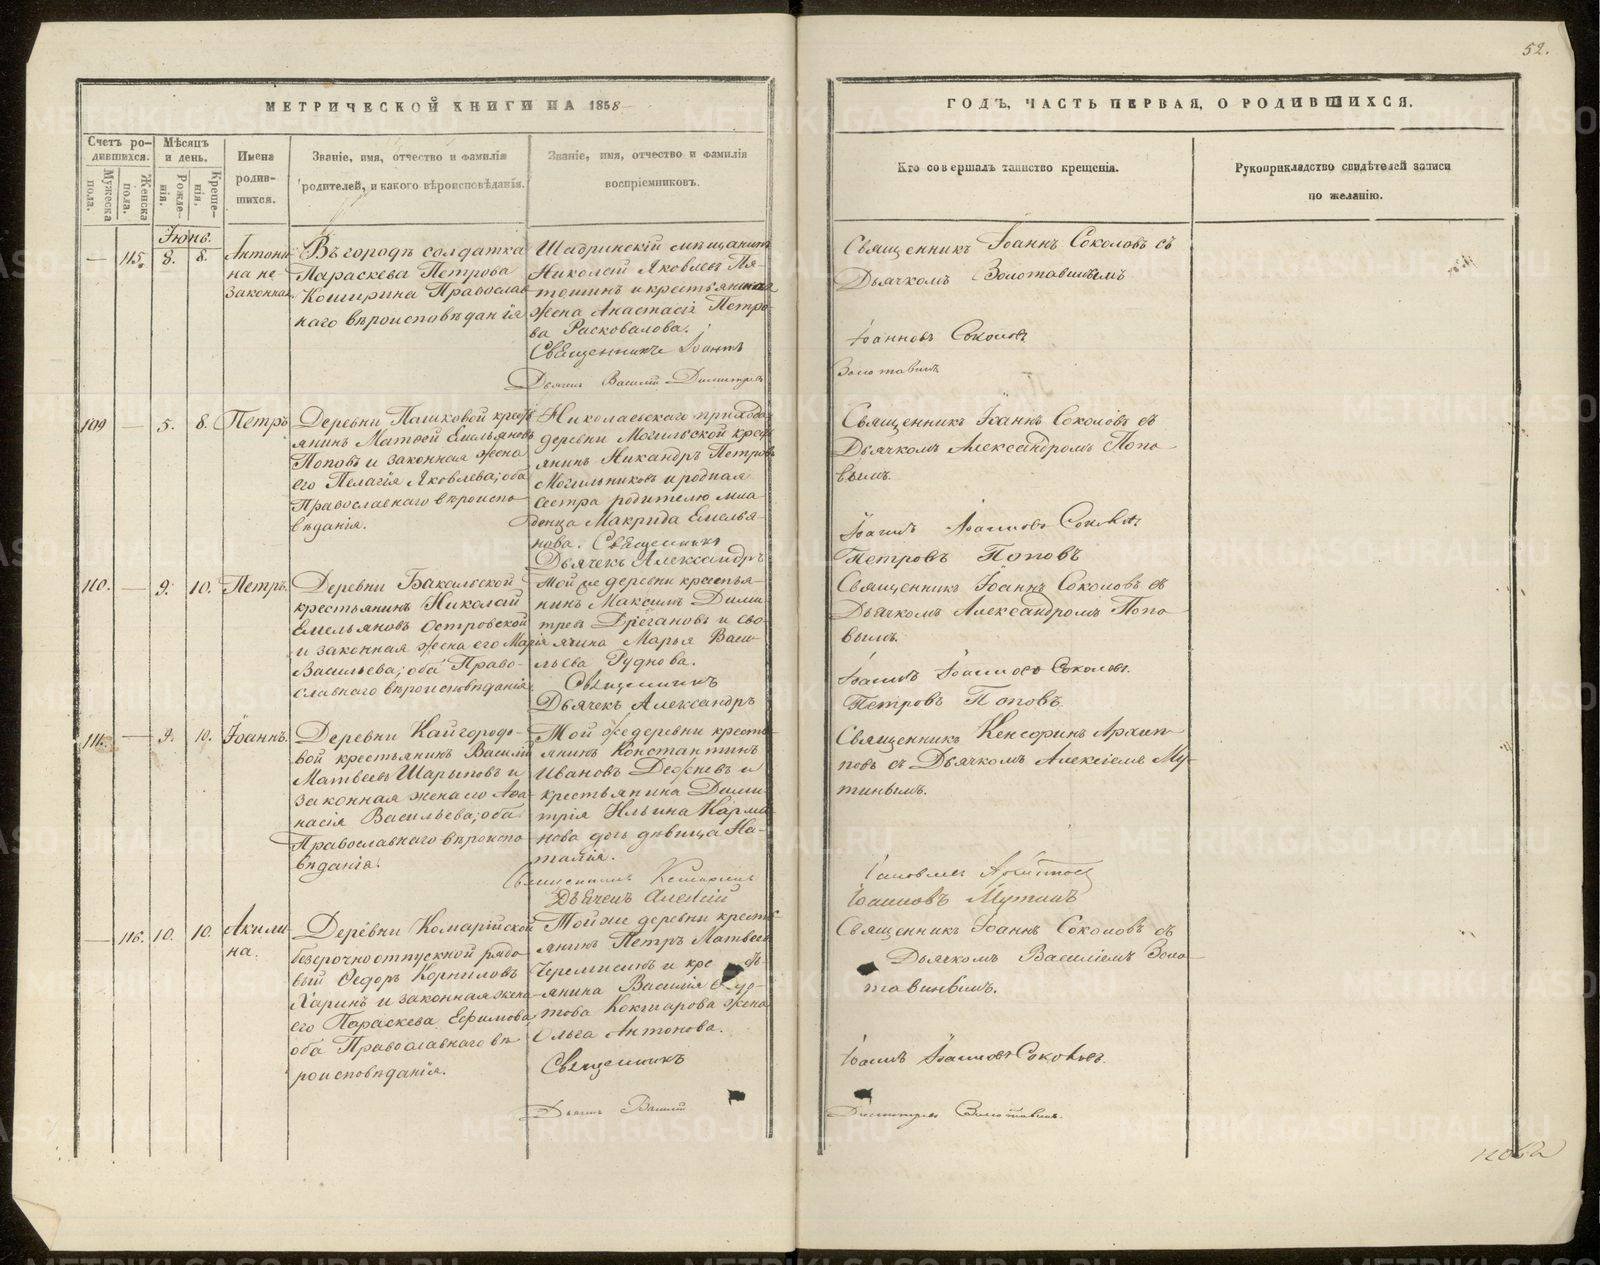 52.
МЕТРИЧЕСКОЙ КНИГИ НА 1858
ГОДЪ, ЧАСТЬ ПЕРВАЯ, О РОДИВШИХСЯ.
Счетъ ро-
дившихся.
Мужеска
пола.
Женска
пола.
Мѣсяцъ
и день.
Рожде-
нія.
Креще-
нія.
Имена
родив-
шихся.
Званіе, имя, отчество и фамилія
родителей, и какого вѣроисповѣданія.
Званіе, имя, отчество и фамилія
воспріемниковъ.
Кто совершалъ таинство крещенія.
Рукоприкладство свидѣтелей записи
по желанію.
Іюнь.
— 115. 8. 8.
Антони
на не
законная
Въ городѣ солдатка
Параскева Петрова
Кошкрина Православ
наго вѣроисповѣданія
Шадринскій мѣщанинъ
Николай Яковлевъ Пя-
тошинъ и крестьянина
жена Анастасія Петро-
ва Расковалова.
Священникъ Іоаннъ
Дьячекъ Василій Димитріевъ
Священникъ Іоаннъ Соколовъ съ
Дьячкомъ Золотавинымъ
Іоанновъ Соколовъ
Золотавинъ
109 — 5. 8. Петръ
Деревни Пашковой кресть
янинъ Матвей Емельяновъ
Поповъ и законная жена
его Пелагія Яковлева; оба
Православнаго вѣроиспо-
вѣданія.
Николаевскаго прихода
деревни Могильской кресть
янинъ Никандръ Петровъ
Могильниковъ и родная
сестра родителю мла
денца Макрида Емелья-
нова. Священникъ
Дьячекъ Александръ
Священникъ Іоаннъ Соколовъ съ
Дьячкомъ Александромъ Попо-
вымъ.
Іоаннъ Іоанновъ Соколовъ
Петровъ Поповъ
110. — 9. 10. Петръ.
Деревни Бакальской
крестьянинъ Николай
Емельяновъ Островской
и законная жена его Марія
Васильева; оба Право-
славнаго вѣроисповѣданія
Той же деревни крестья-
нинъ Максимъ Дими-
тревъ Дрегановъ и сво-
ячина Марья Васи-
льева Руднова.
Священникъ
Дьячекъ Александръ
Священникъ Іоаннъ Соколовъ съ
Дьячкомъ Александромъ Попо-
вымъ.
Іоаннъ Іоанновъ Соколовъ.
Петровъ Поповъ.
111. — 9. 10. Іоаннъ.
Деревни Кайгородо-
вой крестьянинъ Василій
Матвеевъ Шариповъ и
законная жена его Афа-
насія Васильева; оба
Православнаго вѣроиспо
вѣданія.
Той же деревни кресть-
янинъ Константинъ
Ивановъ Дежневъ и
крестьянина Дими-
трія Ильина Карма
нова дочь дѣвица На-
талія.
Священникъ Ксенофонъ
Дьячекъ Алексій
Священникъ Ксенофонъ Архип-
повъ съ Дьячкомъ Алексіемъ Му-
тинымъ.
Іоанновъ Мутинъ
— 116. 10. 10.
Акили
на.
Деревни Комарійской
безсрочноотпускной рядо-
вый Ѳедоръ Корниловъ
Ларинъ и законная жена
его Параскева Ефимова
оба Православнаго вѣ
роисповѣданія.
Той же деревни кресть-
янинъ Петръ Матвеевъ
Черемисинъ и кресть-
янина Василія
това Кокшарова жена
Ольга Антонова.
Священникъ
Дьячекъ Василій
Священникъ Іоаннъ Соколовъ съ
Дьячкомъ Василіемъ Золо-
тавинымъ.
Іоаннъ Іоанновъ Соколовъ.
Димитріевъ Золотавинъ.